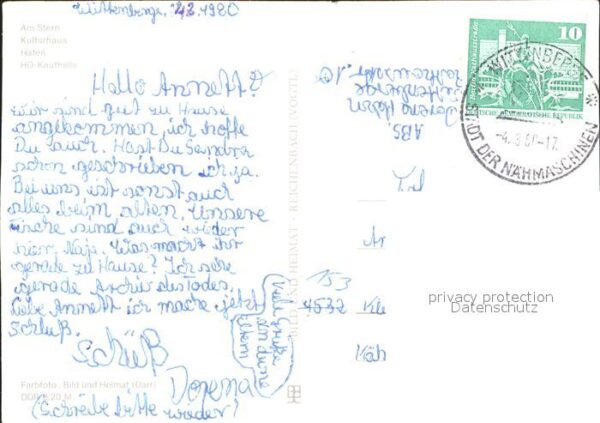 Wittenberge, 4.8.1980
Am Stern
Kulturhaus
Hafen
HO-Kaufhalle
Hallo Annett!
Wir sind gut zu Hause
angekommen, ich hoffe
Du auch. Hast Du Sandra
schon geschrieben ich ja.
Bei uns ist sonst auch
alles beim alten. Unsere
Fische sind auch wieder
hier. Naja. Was macht ihr
gerade zu Hause? Ich sehe
gerade Archiv des Todes.
Liebe Annett ich mache jetzt
Schluß.
Tschüß
Verena
(Schreibe bitte wieder)
Viele Grüße
an deine
Eltern
Farbfoto: Bild und Heimat (Darr)
DDR 0,20 M
BILD UND HEIMAT REICHENBACH
ABS.
Verena
Wittenberge
10
DEUTSCHE DEMOKRATISCHE REPUBLIK
WITTENBERGE
STADT DER NÄHMASCHINEN
-4.8.80-17
153
4532
privacy protection
Datenschutz